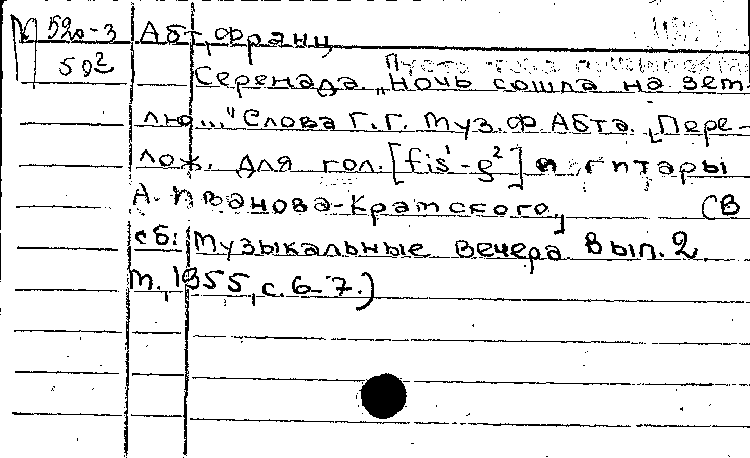 М 520-3 Абт, Франц
50²
Серенада. „Ночь сошла на зем-
лю..." Слова Г.Г. Муз. Ф Абта. [Пере-
лож. для гол. [fis¹-g²] и гитары
А. Иванова-Крамского] (В
сб: Музыкальные вечера Вып. 2
М., 1955, с. 6-7.)